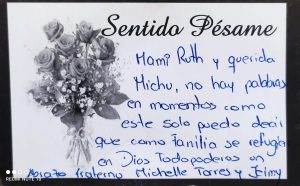 Sentido Pésame
Mami Ruth y querida
Michu, no hay palabras
en momentos como
este solo puedo decir
que como Familia se refugien
en Dios Todopoderoso un
Abrazo fraterno Michelle Torres y
REDMI NOTE